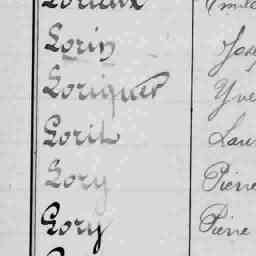 Lorieux
Lorin
Loriquer Yve
Lorit Lau
Lory Pierre
Lory Pierre